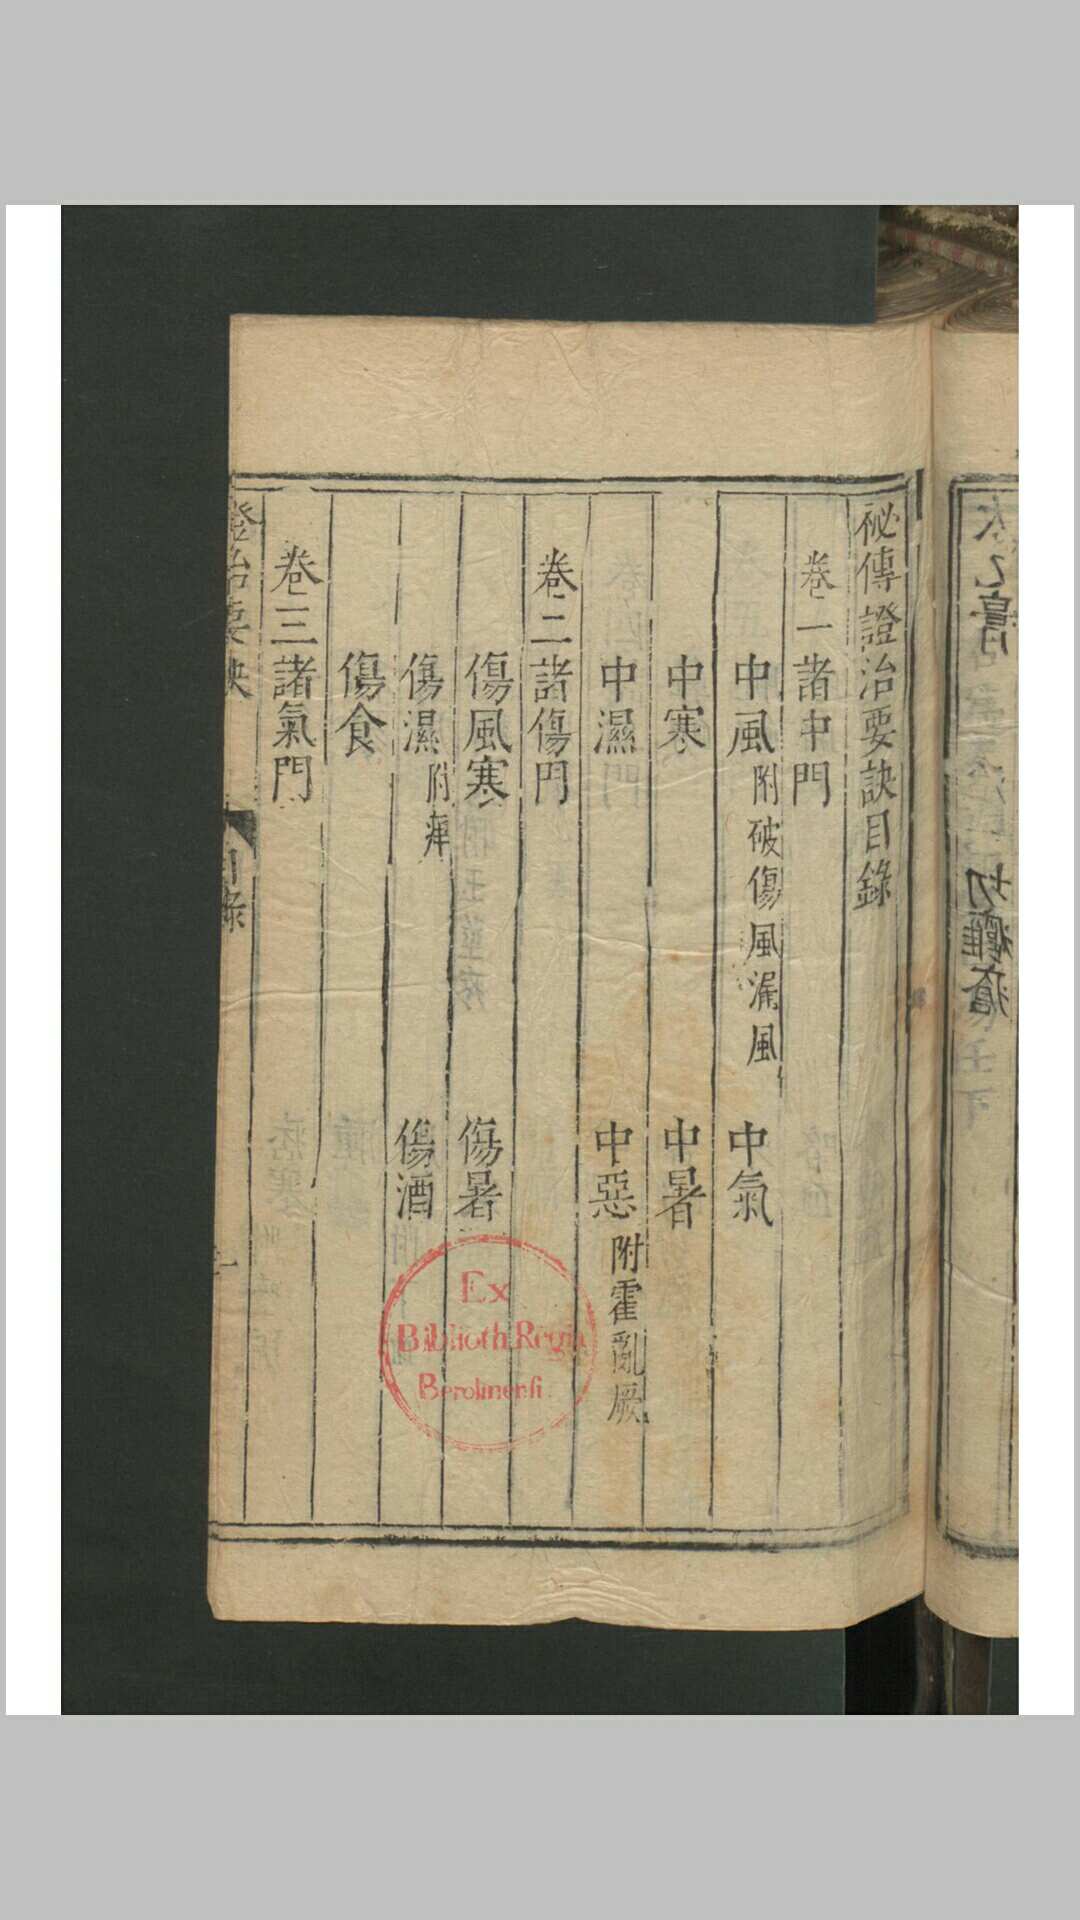 祕傳證治要訣目錄
卷一諸中門
中風 附破傷風漏風 中氣
中寒 中暑
中濕 中惡 附霍亂厥
卷二諸傷門
傷風寒 傷暑
傷濕 附痺 傷酒
傷食
卷三諸氣門
證治要訣 目錄 一
Ex
Biblioth. Regia
Berolinensi